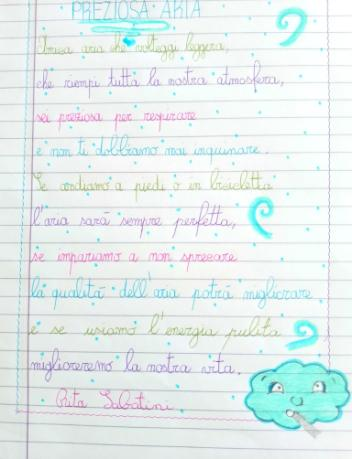 PREZIOSA ARIA
aria che volteggi leggera,
che riempi tutta la nostra atmosfera,
sei preziosa per respirare
e non ti dobbiamo mai inquinare.
Se andiamo a piedi o in bicicletta
l'aria sarà sempre perfetta,
se impariamo a non sprecare
la qualità dell'aria potrà migliorare
e se usiamo l'energia pulita
miglioreremo la nostra vita.
Rita Sabatini